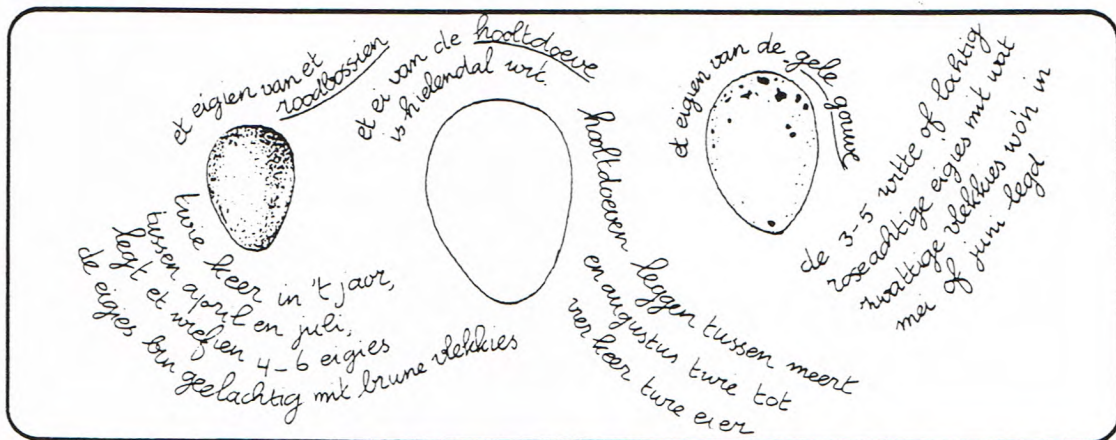 et eigien van et
roodbossien
twie keer in 't jaor,
tussen april en juli,
legt et wiefien 4-6 eigies
de eigies bin geelachtig mit brune vlekkies
et ei van de hooltdoeve
is hielendal wit.
hooltdoeven leggen tussen meert
en augustus twie tot
vier keer twie eier
et eigien van de gele gouwe
de 3-5 witte of lochtig
roseachtige eigies mit wat
zwattige vlekkies wo'n in
mei of juni legd